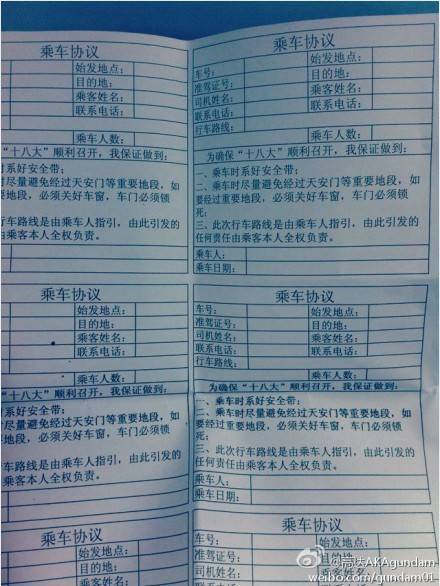 乘车协议
始发地点：
目的地：
乘客姓名：
联系电话：
乘车人数：
“十八大”顺利召开，我保证做到：
时系好安全带；
时尽量避免经过天安门等重要地段，如
地段，必须关好车窗，车门必须锁
行车路线是由乘车人指引，由此引发的
由乘客本人全权负责。
乘车协议
车号：
始发地点：
准驾证号：
目的地：
司机姓名：
乘客姓名：
联系电话：
联系电话：
行车路线：
乘车人数：
为确保“十八大”顺利召开，我保证做到：
一、乘车时系好安全带；
二、乘车时尽量避免经过天安门等重要地段，如
要经过重要地段，必须关好车窗，车门必须锁
死；
三、此次行车路线是由乘车人指引，由此引发的
任何责任由乘客本人全权负责。
乘车人：
乘车日期：
乘车协议
始发地点：
目的地：
乘客姓名：
联系电话：
乘车人数：
“十八大”顺利召开，我保证做到：
时系好安全带；
时尽量避免经过天安门等重要地段，如
地段，必须关好车窗，车门必须锁
行车路线是由乘车人指引，由此引发的
乘客本人全权负责。
乘车协议
车号：
始发地点：
准驾证号：
目的地：
司机姓名：
乘客姓名：
联系电话：
联系电话：
行车路线：
乘车人数：
为确保“十八大”顺利召开，我保证做到：
一、乘车时系好安全带；
二、乘车时尽量避免经过天安门等重要地段，如
要经过重要地段，必须关好车窗，车门必须锁
死；
三、此次行车路线是由乘车人指引，由此引发的
任何责任由乘客本人全权负责。
乘车人：
乘车日期：
乘车协议
始发地点：
目的地：
乘客姓名：
联系电话：
乘车协议
车号：
始发地点：
准驾证号：
目的地：
司机姓名：
AKAgundam
weibo.com/gundamvs